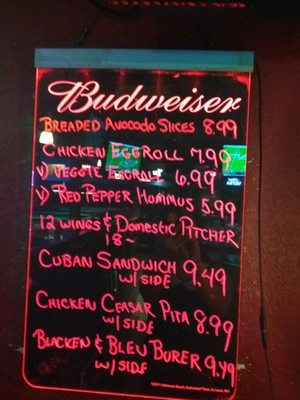 Budweiser
BREADED AVOCODO SLICES 8.99
CHICKEN EGGROLL 7.99
V) VEGGIE EGGROLL 6.99
V) RED-PEPPER HUMMUS 5.99
12 WINGS & DOMESTIC PITCHER
18-
CUBAN SANDWICH 9.49
W/ SIDE
CHICKEN CEASAR PITA 8.99
W/ SIDE
BLACKEN & BLEU BURER 9.49
W/ SIDE